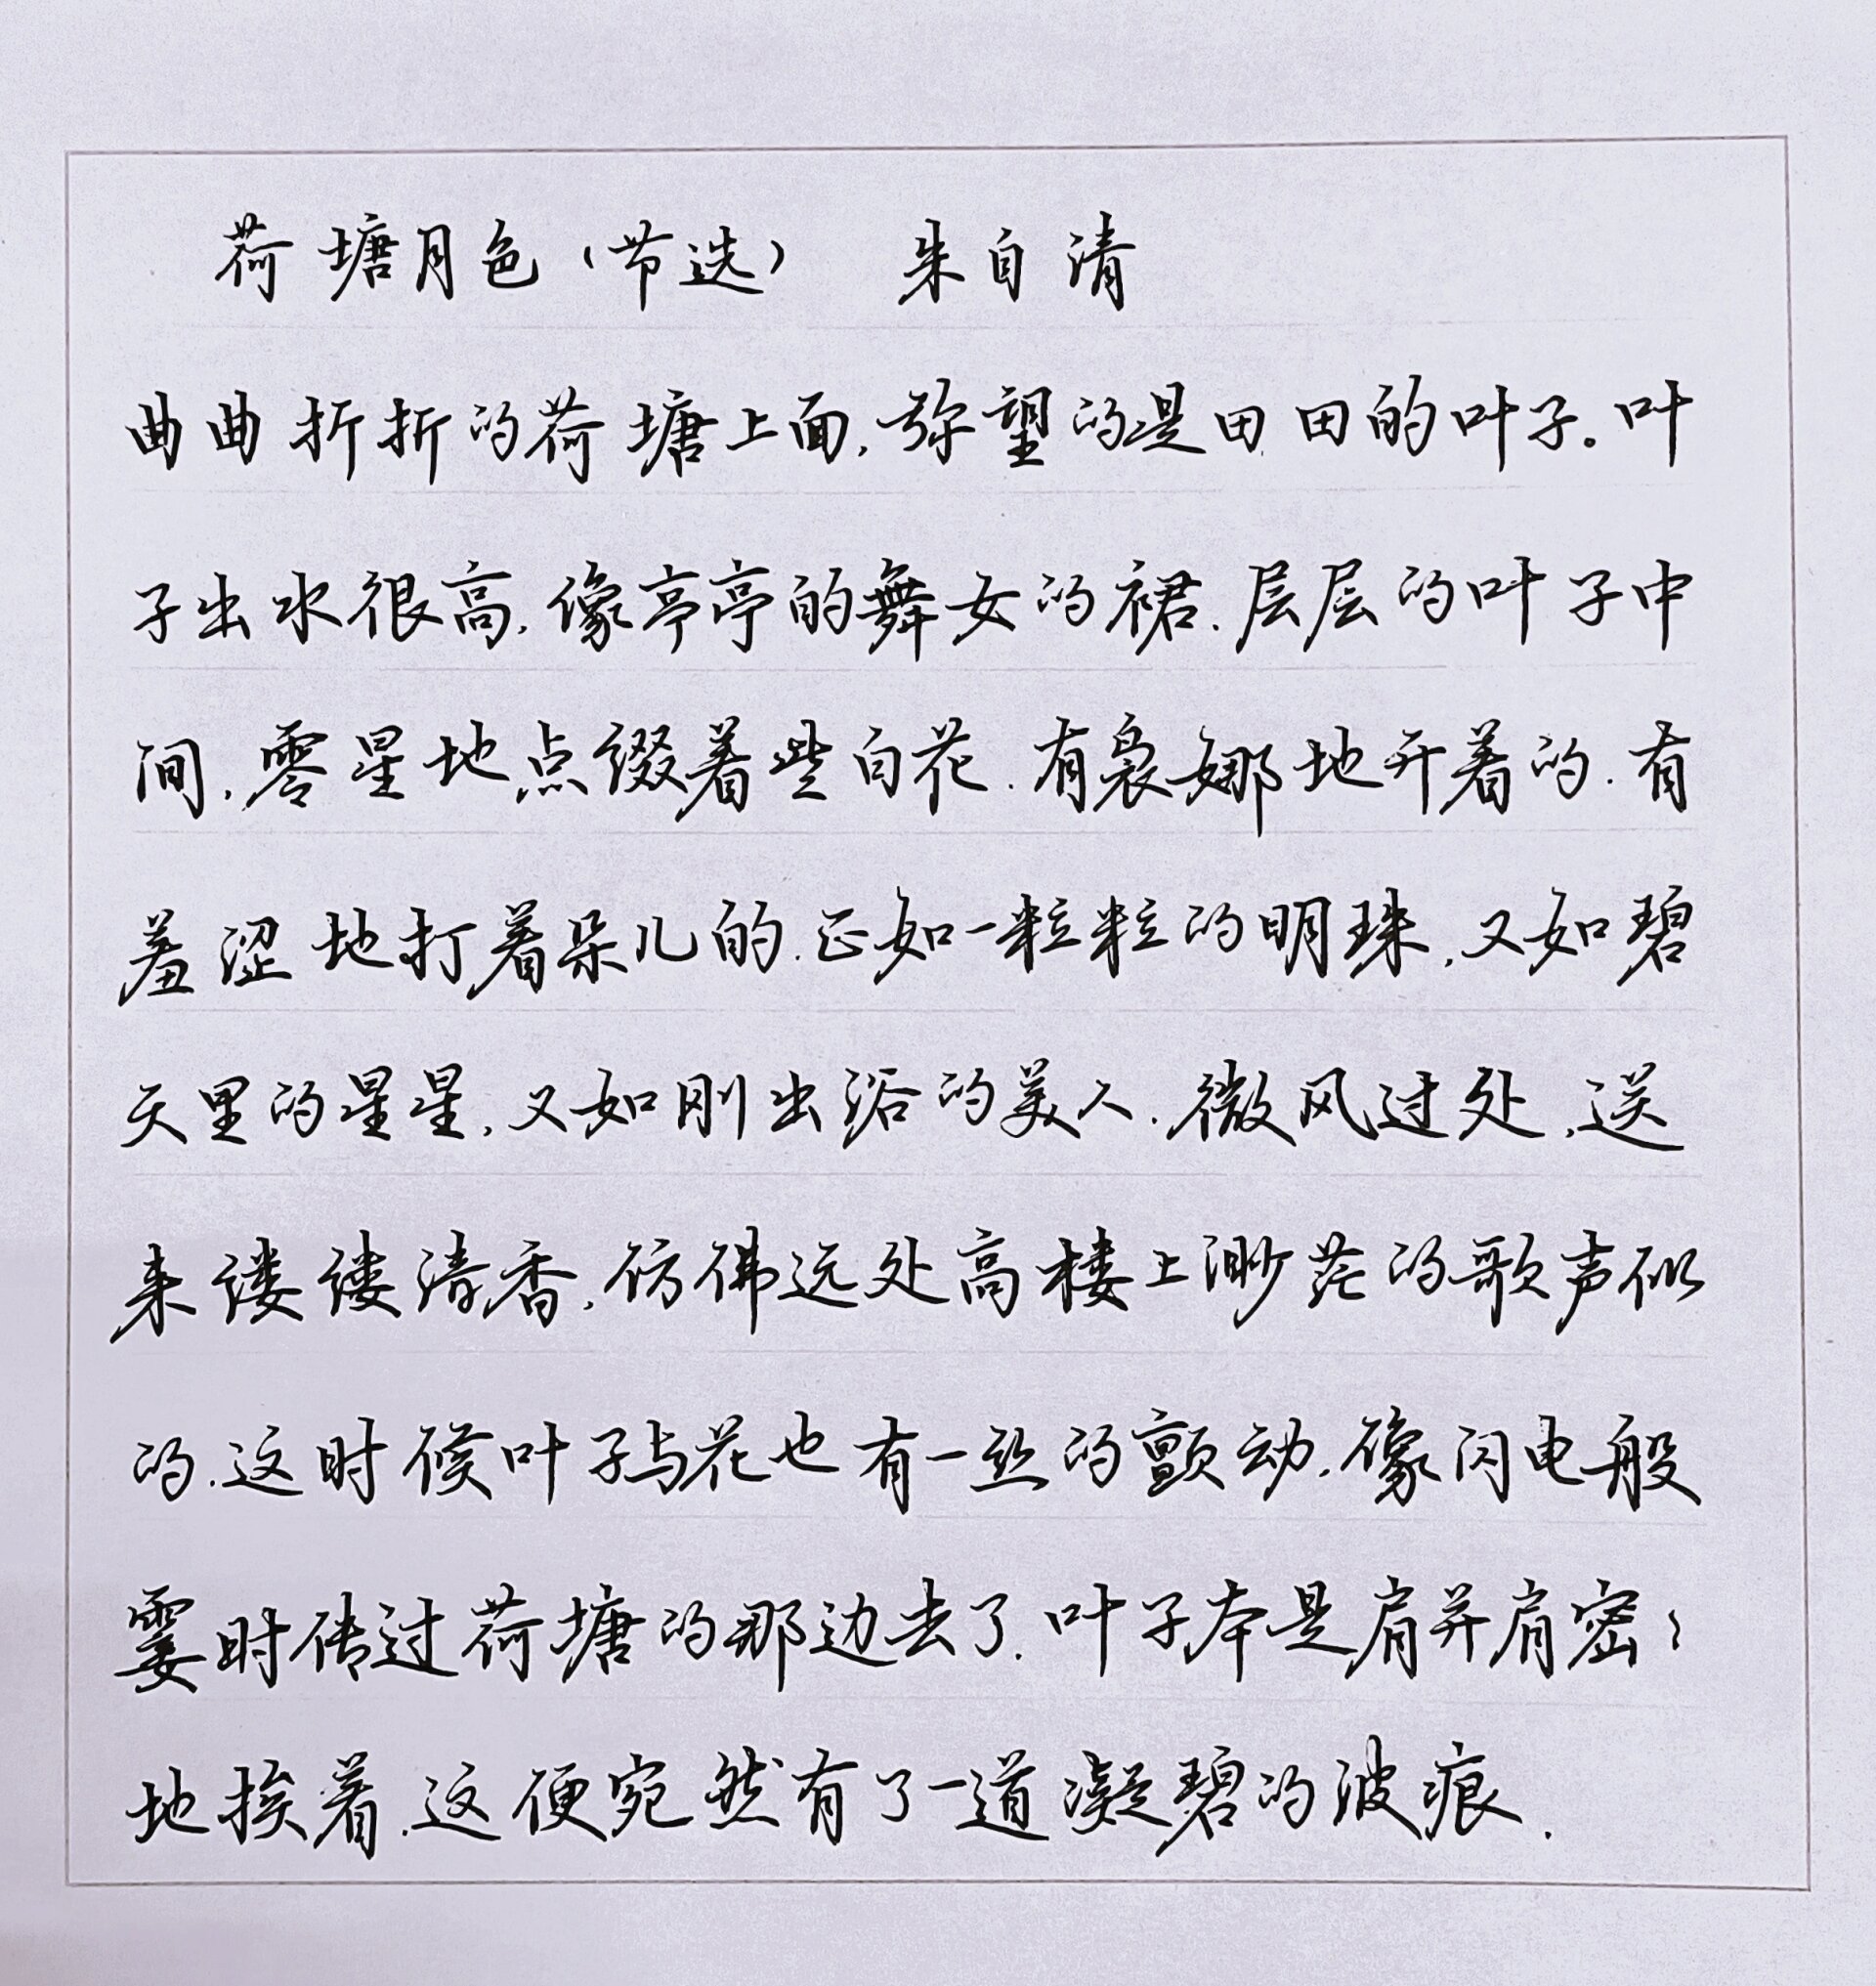 荷塘月色（节选） 朱自清
曲曲折折的荷塘上面，弥望的是田田的叶子。叶
子出水很高，像亭亭的舞女的裙.层层的叶子中
间，零星地点缀着些白花.有袅娜地开着的.有
羞涩地打着朵儿的.正如一粒粒的明珠，又如碧
天里的星星，又如刚出浴的美人.微风过处，送
来缕缕清香，仿佛远处高楼上渺茫的歌声似
的.这时候叶子与花也有一丝的颤动，像闪电般
霎时传过荷塘的那边去了.叶子本是肩并肩密々
地挨着.这便宛然有了一道凝碧的波痕.